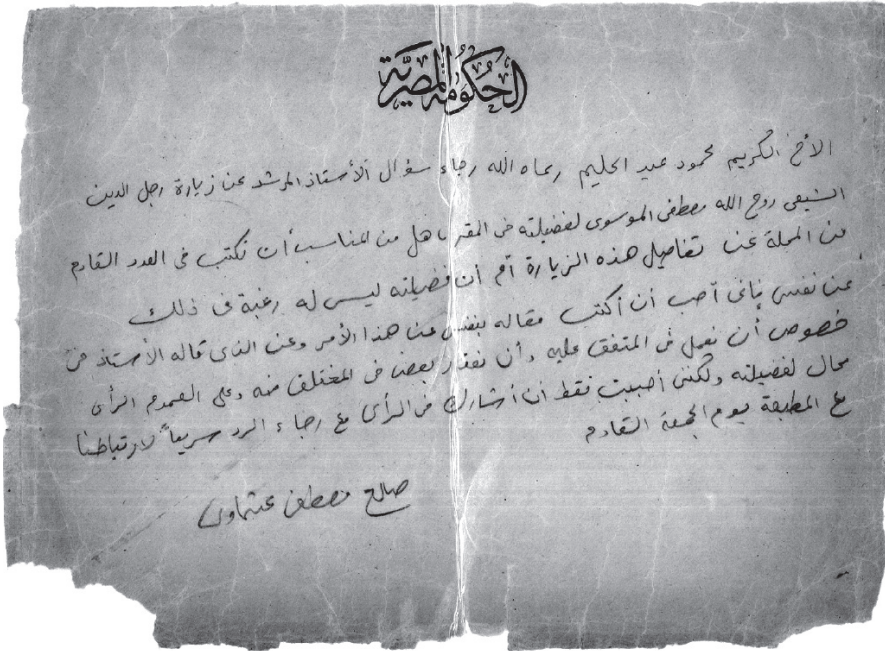 الحكومة المصرية
الأخ الكريم محمود عبد الحليم رعاه الله رجاء سؤال الأستاذ المرشد عن زيارة رجل الدين
الشيعى روح الله مصطفى الموسوى لفضيلته فى المقر هل من المناسب أن نكتب فى العدد القادم
من المجلة عن تفاصيل هذه الزيارة أم أن فضيلته ليس له رغبة فى ذلك
عن نفسى فإنى أحب أن أكتب مقاله بنفسى عن هذا الأمر وعن الذى قاله الأستاذ فى
خصوص أن نعمل فى المتفق عليه وأن نعذر بعضنا فى المختلف فيه وعلى العموم الرأى
محال لفضيلته ولكننى أحببت فقط أن أشارك فى الرأى مع رجاء الرد سريعاً لارتباطنا
مع المطبعة يوم الجمعة القادم
صالح مصطفى عشماوى